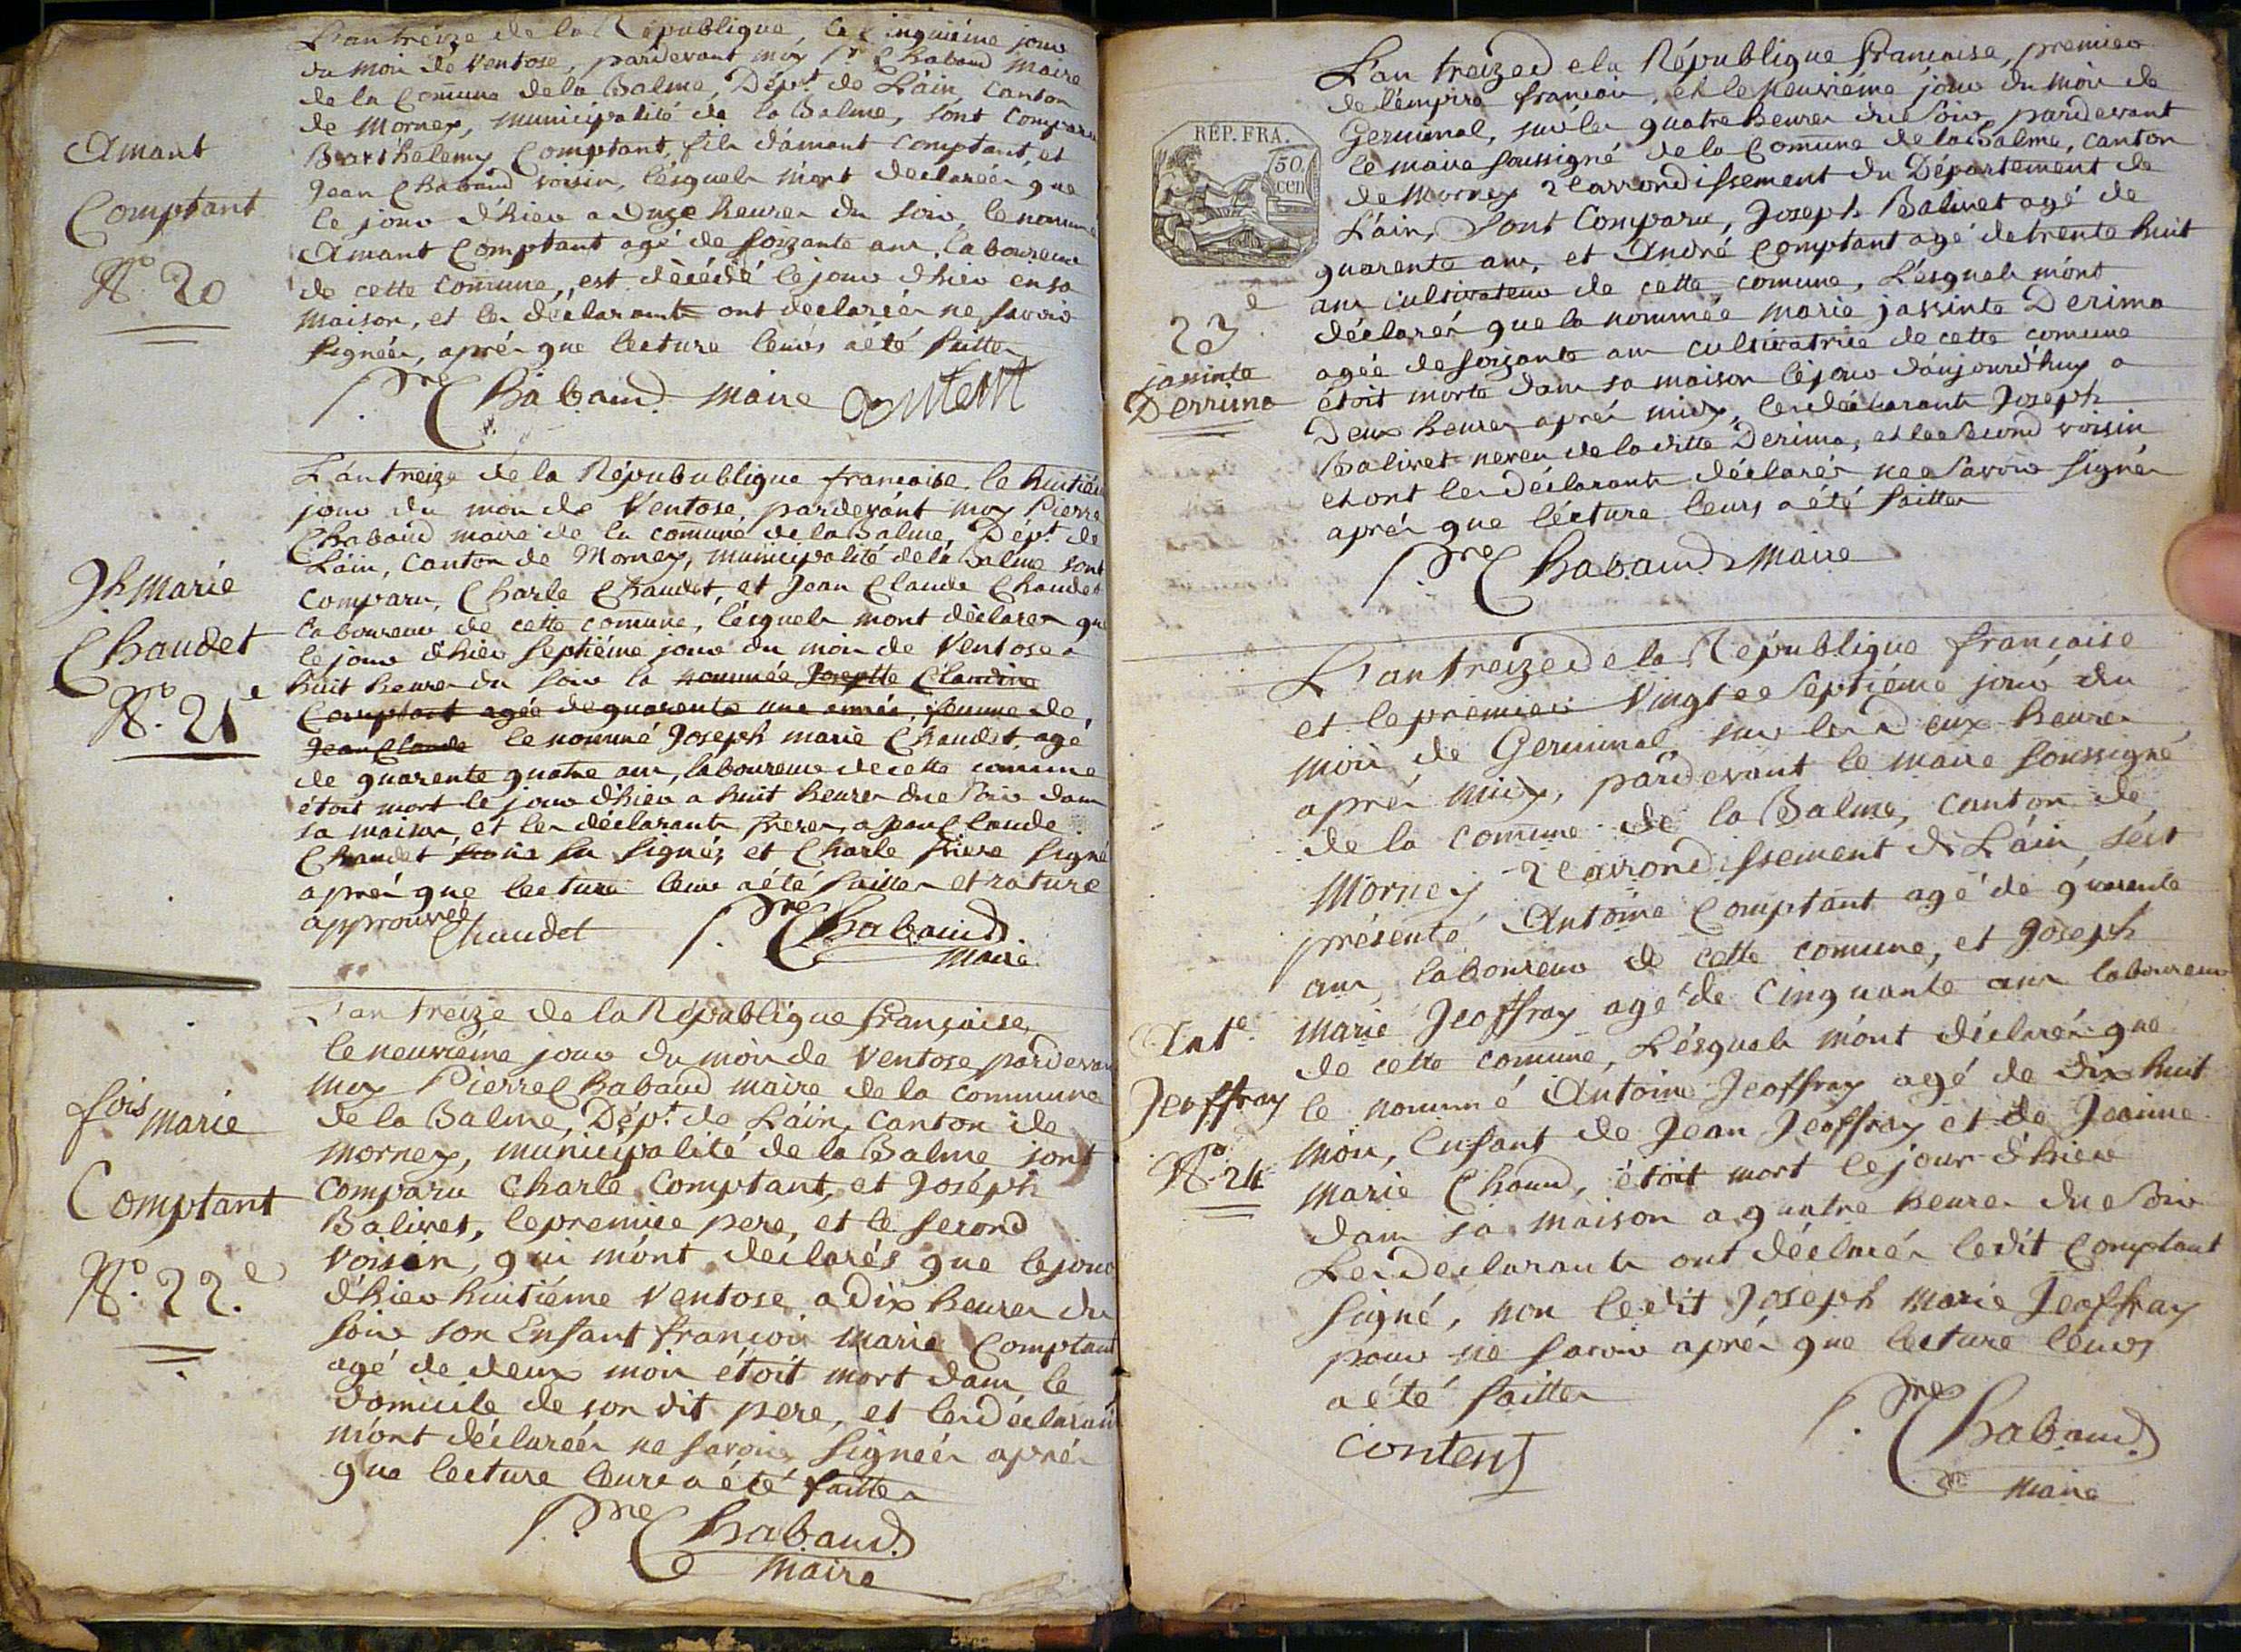 L'an treize de la République, le cinquiéme jour
du mois de Ventose, pardevant moy Pre Chabaud maire
de la Comune de la Balme, Dépt de L'ain, Canton
de Mornex, municipalité de la Balme, sont Comparu
Barthelemy Comptant, fils d'amant Comptant, et
Jean Chabaud voisin, lésquels m'ont declareés que
le jour d'hier a onze heures du soir, le nommé
Amant Comptant agé de soizante ans, laboureur
de cette Comune, est décédé le jour d'hier en sa
maison, et les déclarants ont declareés ne savoir
signeér, aprés que lecture leurs a été faittes
Amant
Comptant
No. 20
Pre Chabaud maire
L'an treize de la Répubublique francaise, le huitiém
jour du mois de Ventose, pardevant moy Pierre
Chabaud maire de la comune de la Balme, Dépt de
L'ain, Canton de Mornex, municipalité de la Balme sont
comparu, Charle Chaudet, et Jean Claude Chaudet
laboureur de cette comune, lésquels mont déclarés que
le jour d'hier septiéme jour du mois de Ventose a
huit heures du soir la nommée Josephte Claudine
Comptant agée de quarente une année, femme de,
Jean Claude le nommé Joseph marie Chaudet, agé
de quarente quatre ans, laboureur de cette comune
étoit mort le jour d'hier a huit heures du soir dans
sa maison, et les déclarants freres, a Jean Claude
Chaudet su signér, et Charle friere signé
aprés que lecture leur a été faittes et rature
approuvée
Jh marie
Chaudet
No. 21e
Chaudet Pre Chabaud
maire
L'an treize de la République française,
le neuviéme jour du mois de Ventose pardevan
moy Pierre Chabaud maire de la commune
de la Balme, Dépt de L'ain, Canton de
mornex, municipalité de la Balme sont
comparu Charle Comptant, et Joseph
Balivet, le premier pere, et le second
voisin, qui m'ont declarés que le jour
d'hier huitiéme Ventose a dix heures du
soir son Enfant françois marie Comptant
agé de deux mois étoit mort dans le
domicile de son dit pere, et les déclarant
m'ont déclareér ne savoir signeér aprés
que lecture leurs a été faittes
fois marie
Comptant
No. 22.e
Pre Chabaud
maire
RÉP. FRA.
50
cen
L'an treize de la République francaise, premier
de l'empire francois, et le neuviéme jour du mois de
Germinal, sur les quatre heures du soir, pardevant
le maire soussigné de la Comune de la Balme, canton
de Mornex 2e arrondissement du Département de
L'ain, Sont Comparu, Joseph Balivet agé de
quarente ans, et André Comptant agé de trente huit
ans cultivateur de cette comune, Lésquels m'ont
déclarés que la nommée marie jassinte Derima
agée de soizante ans cultivatrice de cette comune
étoit morte dans sa maison le jour d'aujourd'huy a
Deux heures aprés midy, les déclarants Joseph
Balivet neveu de la ditte Derima, et le second voisin
et ont les déclarants déclarés ne savoir signér
aprés que lécture leurs a été faittes
23e
jassinte
Derrima
Pre Chabaud Maire
L'an treize de la République française
et le premier Vingt et septiéme jour du
mois de Germinal, sur les deux heures
aprés midy, pardevant le maire soussigné
de la comune de la Balme, canton de
Mornex 2e arrondissement de L'ain, s'est
présenté Antoine Comptant agé de quarente
ans, laboureur de cette comune, et Joseph
marie Jeoffray agé de Cinquante ans laboureur
de cette comune, Lésquels m'ont déclarés que
le nommé Antoine Jeoffray agé de dix huit
mois, Enfant de Jean Jeoffray et de Jeanne
marie Chaud, étoit mort le jour d'hier
dans sa maison a quatre heures du soir
Les declarants ont déclarés ledit Comptant
signé, non ledit Joseph marie Jeoffray
pour ne savoir aprés que lecture leurs
a été faittes
Ante
Jeoffray
No. 24
content Pre Chabaud
maire